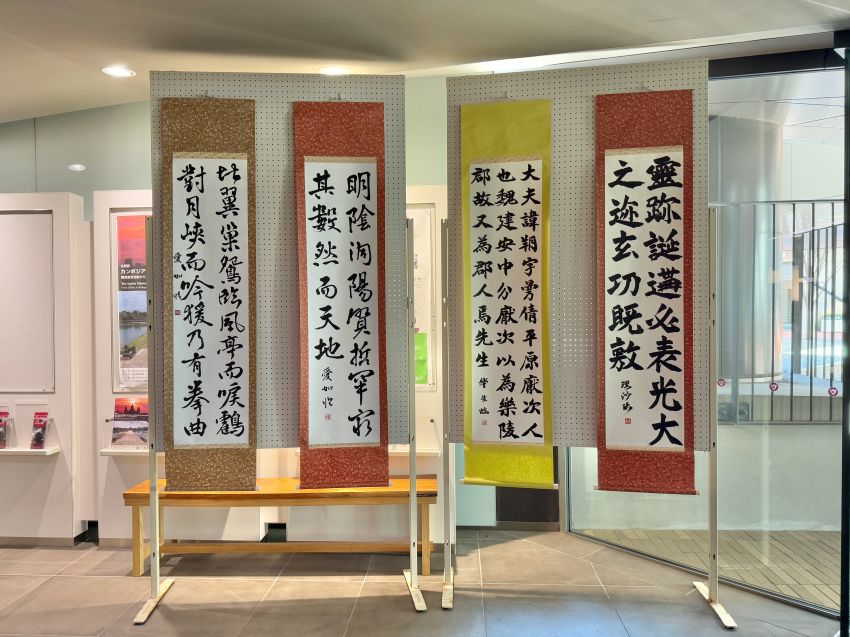 靈跡誕遘必表光大
之迹玄功既敷
大夫諱朔字曼倩平原厭次人
也魏建安中分厭次以為樂陵
郡故又為郡人焉先生
明陰洞陽賢哲罕窮
其數然而天地
比翼巢鴛臨風亭而唳鶴
對月峽而吟猿乃有拳曲
カンボジア